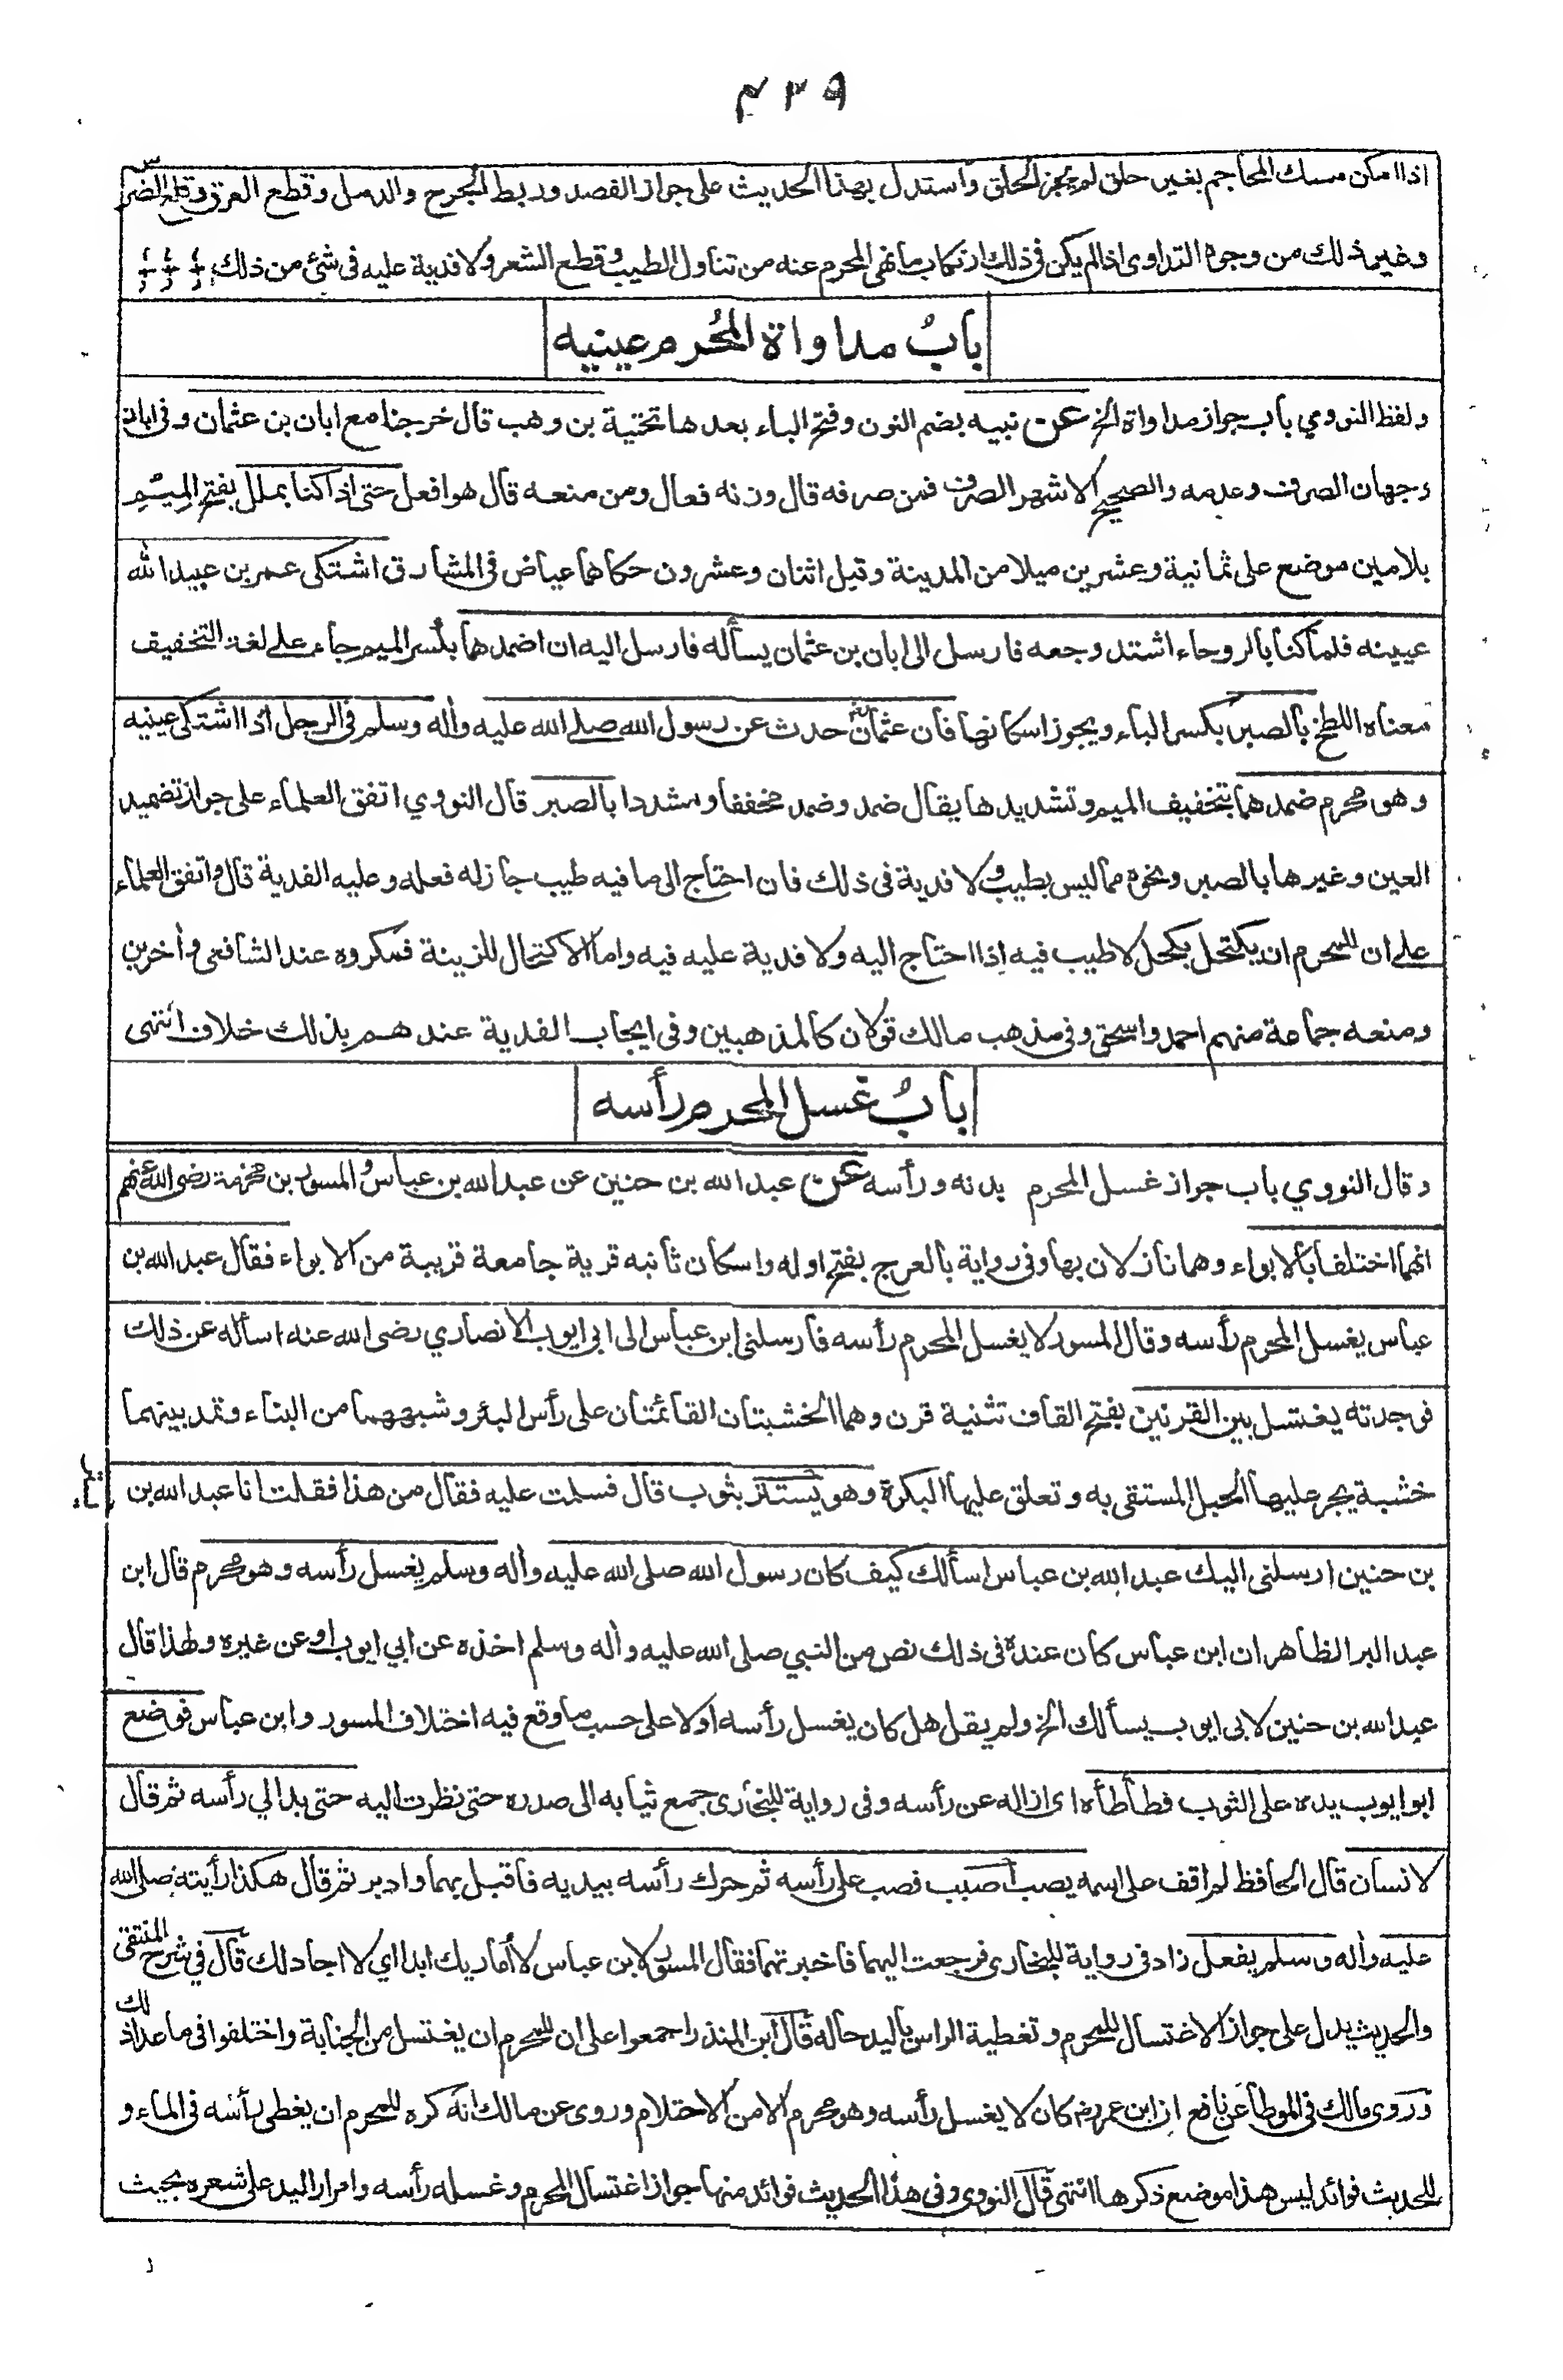 ۴۳۹
اذا امكن مسك المحاجم بغير حلق لم يجز الحلق واستدل بهذا الحديث على جواز الفصد وربط الجرح والدمل وقطع العرق وقلع الضرس
وغير ذلك من وجوه التداوى اذا لم يكن فى ذلك ارتكاب ما نهى المحرم عنه من تناول الطيب وقطع الشعر ولا فدية عليه فى شئ من ذلك
بابُ مداواة المُحرم عينيه
ولفظ النووي باب جواز مداواة الخ عن نبيه بضم النون وفتح الباء بعدها تحتية بن وهب قال خرجنا مع ابان بن عثمان وفى ابان
وجهان الصرف وعدمه والصحيح الاشهر الصرف فمن صرفه قال وزنه فعال ومن منعه قال هو افعل حتى اذا كنا بملل بفتح المِيْمِ
بلامين موضع على ثمانية وعشرين ميلا من المدينة وقيل اثنان وعشرون حكاها عياض فى المشارق اشتكى عمر بن عبيد الله
عيينه فلما كنا بالروحاء اشتد وجعه فارسل الى ابان بن عثمان يسأله فارسل اليه ان اضمدهما بكسر الميم جاء على لغة التخفيف
معناه اللطخ بالصبر بكسر الباء ويجوز اسكانها فان عثمان حدث عن رسول الله صلى الله عليه وأله وسلم فى الرجل اذا اشتكى عينيه
وهو محرم ضمدهما بتخفيف الميم وتشديدها يقال ضمد وضمد مخففا ومشددا بالصبر قال النووي اتفق العلماء على جواز تضميد
العين وغيرها بالصبر ونحوه مما ليس بطيب ولا فدية فى ذلك فان احتاج الى ما فيه طيب جاز له فعله وعليه الفدية قال واتفق العلماء
على ان للمحرم ان يكتحل بكحل لا طيب فيه اذا احتاج اليه ولا فدية عليه فيه واما الاكتحال للزينة فمكروه عند الشافعى وأخرين
ومنعه جماعة منهم احمد واسحق وفى مذهب مالك قولان كالمذهبين وفى ايجاب الفدية عندهم بذلك خلاف انتهى
بابُ غسل المحرم رأسه
وقال النووي باب جواز غسل المحرم بدنه ورأسه عن عبد الله بن حنين عن عبد الله بن عباس والمسور بن مخرمة رضى الله عنهم
انهما اختلفا بالابواء وهما نازلان بها وفى رواية بالعرج بفتح اوله واسكان ثانيه قرية جامعة قريبة من الابواء فقال عبد الله بن
عباس يغسل المحرم رأسه وقال المسور لا يغسل المحرم رأسه فارسلنى ابن عباس الى ابى ايوب الانصاري رضى الله عنه اسأله عن ذلك
فوجدته يغتسل بين القرنين بفتح القاف تثنية قرن وهما الخشبتان القائمتان على رأس البئر وشبههما من البناء وتمد بينهما
خشبة يجر عليها الحبل المستقى به وتعلق عليها البكرة وهو يستتر بثوب قال فسلمت عليه فقال من هذا فقلت انا عبد الله بن
بن حنين ارسلنى اليك عبد الله بن عباس اسألك كيف كان رسول الله صلى الله عليه وأله وسلم يغسل رأسه وهو محرم قال ابن
عبد البر الظاهر ان ابن عباس كان عنده فى ذلك نص من النبي صلى الله عليه وأله وسلم اخذه عن ابي ايوب او عن غيره ولهذا قال
عبد الله بن حنين لابى ايوب يسألك الخ ولم يقل هل كان يغسل رأسه اولا على حسب ما وقع فيه اختلاف المسور وابن عباس فوضع
ابو ايوب يده على الثوب فطأطأه اى ازاله عن رأسه وفى رواية للبخارى جمع ثيابه الى صدره حتى نظرت اليه حتى بدا لي رأسه ثم قال
لانسان قال الحافظ لم اقف على اسمه يصب اصبب فصب على رأسه ثم حرك رأسه بيديه فاقبل بهما وادبر ثم قال هكذا رأيته صلى الله
عليه وأله وسلم يفعل زاد فى رواية للبخارى فرجعت اليهما فاخبرتهما فقال المسور لابن عباس لا أماريك ابدا اي لا اجادلك قال في شرح المنتقى
والحديث يدل على جواز الاغتسال للمحرم وتغطية الراس باليد حاله قال ابن المنذر اجمعوا على ان للمحرم ان يغتسل من الجنابة واختلفوا فى ما عدا ذلك
وروى مالك فى الموطأ عن نافع ان ابن عمر رض كان لا يغسل رأسه وهو محرم الا من الاحتلام وروى عن مالك انه كره للمحرم ان يغطى رأسه فى الماء و
للحديث فوائد ليس هذا موضع ذكرها انتهى قال النووى وفى هذا الحديث فوائد منها جواز اغتسال المحرم وغسله رأسه وامرار اليد على شعره بحيث